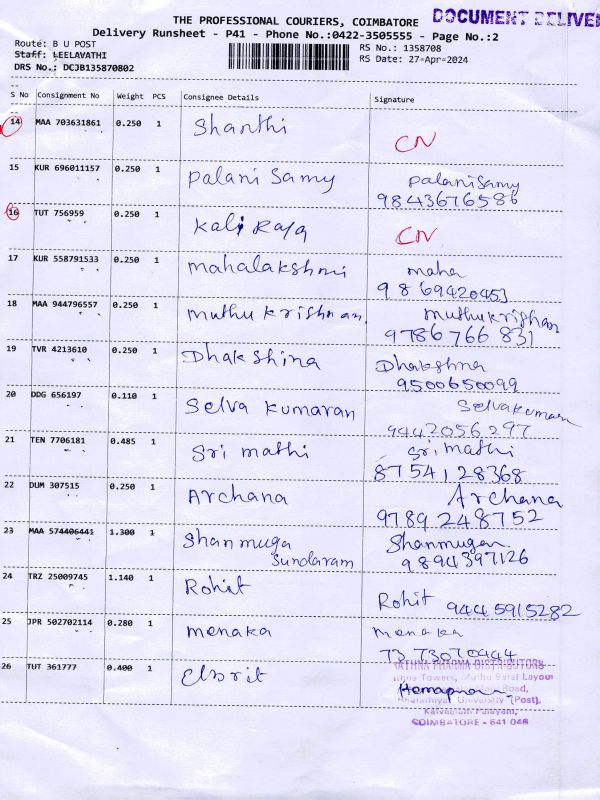 THE PROFESSIONAL COURIERS, COIMBATORE
DOCUMENT DELIVER
Delivery Runsheet - P41 - Phone No.:0422-3505555 - Page No.:2
Route: B U POST
Staff: LEELAVATHI
DRS No.: DCJB135870802
RS No.: 1358708
RS Date: 27-Apr-2024
S No Consignment No Weight PCS Consignee Details Signature
14 MAA 703631861 0.250 1 Shanthi CN
15 KUR 696011157 0.250 1 Palani Samy Palanisamy
9843676586
16 TUT 756959 0.250 1 Kali Raja CN
17 KUR 558791533 0.250 1 mahalakshmi maha
9869420453
18 MAA 944796557 0.250 1 muthukrishnan muthukrishnan
9786766831
19 TVR 4213610 0.250 1 Dhakshina Dhakshna
9500650099
20 DDG 656197 0.110 1 Selva kumaran Selvakumaran
9442056297
21 TEN 7706181 0.485 1 Sri mathi Sri mathi
8754128368
22 DUM 307515 0.250 1 Archana Archana
9789248752
23 MAA 574406441 1.300 1 Shanmuga Shanmugan
Sundaram 9894397126
24 TRZ 25009745 1.140 1 Rohit
Rohit 9445915282
25 JPR 502702114 0.280 1 menaka menaka
7373070444
26 TUT 361777 0.400 1
PHARMA DISTRIBUTORS
Towers, Muthu Saral Layout
Road,
University (Post),
COIMBATORE - 641 046